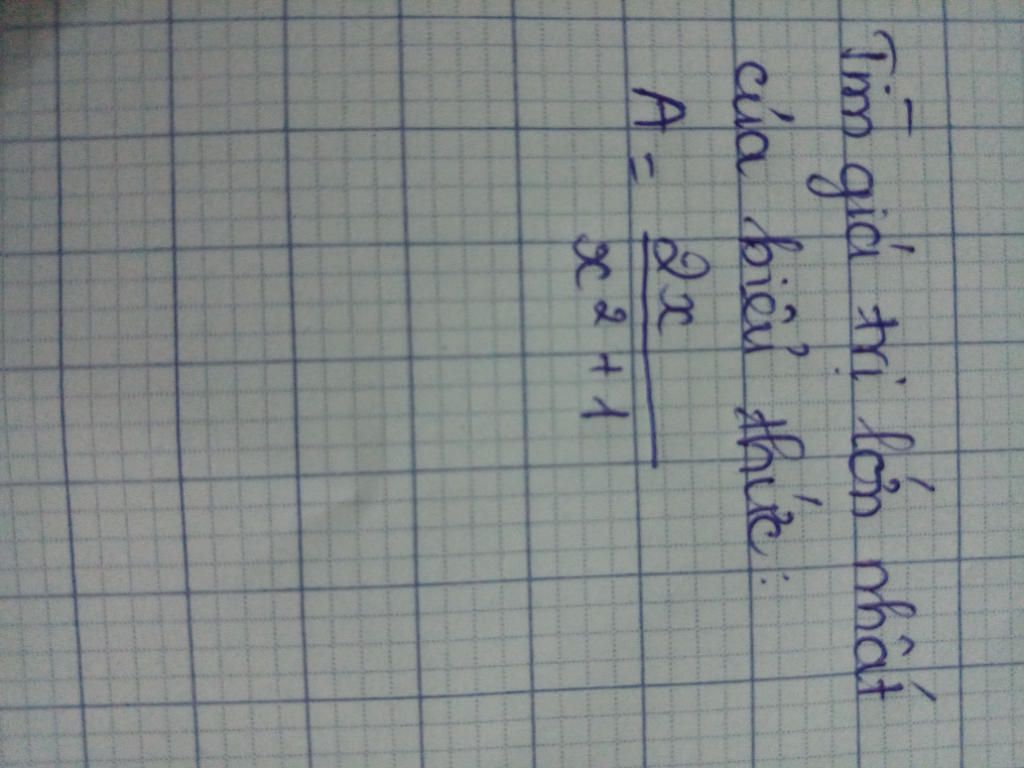 Tìm giá trị lớn nhất
của biểu thức:
A = 2x
x² + 1